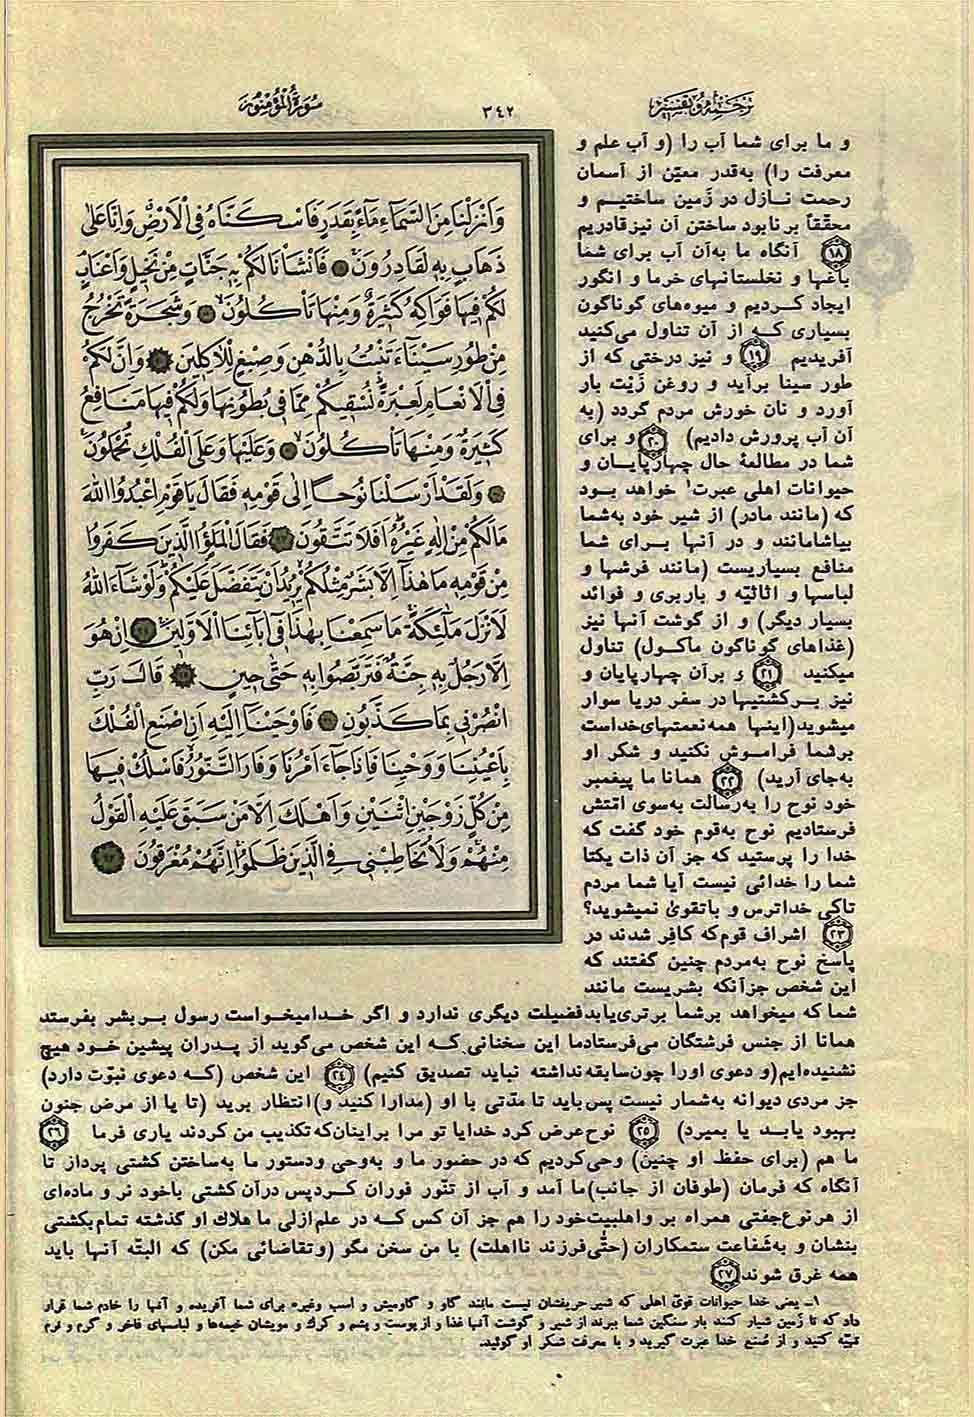 ترجمه و تفسیر
۳۴۲
سورة المؤمنون
وَاَنْزَلْنَا مِنَ السَّمَآءِ مَآءً بِقَدَرٍ فَاَسْكَنَّاهُ فِي الْاَرْضِ وَاِنَّا عَلٰى
ذَهَابٍ بِهِ لَقَادِرُونَ ۱۸ فَاَنْشَاْنَا لَكُمْ بِهِ جَنَّاتٍ مِنْ نَخِيلٍ وَاَعْنَابٍ
لَكُمْ فِيهَا فَوَاكِهُ كَثِيرَةٌ وَمِنْهَا تَاْكُلُونَ ۱۹ وَشَجَرَةً تَخْرُجُ
مِنْ طُورِ سَيْنَآءَ تَنْبُتُ بِالدُّهْنِ وَصِبْغٍ لِلْاٰكِلِينَ ۲۰ وَاِنَّ لَكُمْ
فِي الْاَنْعَامِ لَعِبْرَةً نُسْقِيكُمْ مِمَّا فِي بُطُونِهَا وَلَكُمْ فِيهَا مَنَافِعُ
كَثِيرَةٌ وَمِنْهَا تَاْكُلُونَ ۲۱ وَعَلَيْهَا وَعَلَى الْفُلْكِ تُحْمَلُونَ
۲۲ وَلَقَدْ اَرْسَلْنَا نُوحًا اِلٰى قَوْمِهِ فَقَالَ يَا قَوْمِ اعْبُدُوا اللّٰهَ
مَا لَكُمْ مِنْ اِلٰهٍ غَيْرُهُ اَفَلَا تَتَّقُونَ ۲۳ فَقَالَ الْمَلَؤُا الَّذِينَ كَفَرُوا
مِنْ قَوْمِهِ مَا هٰذَا اِلَّا بَشَرٌ مِثْلُكُمْ يُرِيدُ اَنْ يَتَفَضَّلَ عَلَيْكُمْ وَلَوْ شَآءَ اللّٰهُ
لَاَنْزَلَ مَلٰئِكَةً مَا سَمِعْنَا بِهٰذَا فِي اٰبَآئِنَا الْاَوَّلِينَ ۲۴ اِنْ هُوَ
اِلَّا رَجُلٌ بِهِ جِنَّةٌ فَتَرَبَّصُوا بِهِ حَتّٰى حِينٍ ۲۵ قَالَ رَبِّ
انْصُرْنِي بِمَا كَذَّبُونِ ۲۶ فَاَوْحَيْنَا اِلَيْهِ اَنِ اصْنَعِ الْفُلْكَ
بِاَعْيُنِنَا وَوَحْيِنَا فَاِذَا جَآءَ اَمْرُنَا وَفَارَ التَّنُّورُ فَاسْلُكْ فِيهَا
مِنْ كُلٍّ زَوْجَيْنِ اثْنَيْنِ وَاَهْلَكَ اِلَّا مَنْ سَبَقَ عَلَيْهِ الْقَوْلُ
مِنْهُمْ وَلَا تُخَاطِبْنِي فِي الَّذِينَ ظَلَمُوا اِنَّهُمْ مُغْرَقُونَ ۲۷
و ما برای شما آب را (و آب علم و
معرفت را) به‌قدر معیّن از آسمان
رحمت نازل در زَمین ساختیم و
محقّقاً بر نابود ساختن آن نیز قادریم
۱۸ آنگاه ما به‌آن آب برای شما
باغها و نخلستانهای خرما و انگور
ایجاد کردیم و میوه‌های گوناگون
بسیاری که از آن تناول می‌کنید
آفریدیم ۱۹ و نیز درختی که از
طور سینا برآید و روغن زَیْت بار
آورد و نان خورش مردم گردد (به
آن آب پرورش دادیم) ۲۰ و برای
شما در مطالعهٔ حال چهارپایان و
حیوانات اهلی عبرت۱ خواهد بود
که (مانند مادر) از شیر خود به‌شما
بیاشامانند و در آنها برای شما
منافع بسیاریست (مانند فرشها و
لباسها و اثاثیّه و باربری و فوائد
بسیار دیگر) و از گوشت آنها نیز
(غذاهای گوناگون ماکول) تناول
میکنید ۲۱ و برآن چهارپایان و
نیز برکشتیها در سفر دریا سوار
میشوید(اینها همه نعمتهای‌خداست
برشما فراموش نکنید و شکر او
به‌جای آرید) ۲۲ همانا ما پیغمبر
خود نوح را به‌رسالت به‌سوی امّتش
فرستادیم نوح به‌قوم خود گفت که
خدا را پرستید که جز آن ذات یکتا
شما را خدائی نیست آیا شما مردم
تاکی خداترس و باتقوىٰ نمیشوید؟
۲۳ اشراف قوم‌که کافِر شدند در
پاسخ نوح به‌مردم چنین گفتند که
این شخص جزآنکه بشریست مانند
شما که میخواهد برشما برتری‌یابدفضیلت دیگری ندارد و اگر خدامیخواست رسول بر بشر بفرستد
همانا از جنس فرشتگان می‌فرستادما این سخنانی که این شخص می‌گوید از پدران پیشین خود هیچ
نشنیده‌ایم(و دعوی اورا چون‌سابقه‌نداشته نباید تصدیق کنیم) ۲۴ این شخص (که دعوی نبوّت دارد)
جز مردی دیوانه به‌شمار نیست پس‌باید تا مدّتی با او (مدارا کنید و)انتظار برید (تا یا از مرض جنون
بهبود یابد یا بمیرد) ۲۵ نوح‌عرض کرد خدایا تو مرا براینان‌که‌تکذیب من کردند یاری فرما ۲۶
ما هم (برای حفظ او چنین) وحی‌کردیم که در حضور ما و به‌وحی ودستور ما به‌ساختن کشتی پرداز تا
آنگاه که فرمان (طوفان از جانب)ما آمد و آب از تنّور فوران کردپس درآن کشتی باخود نر و ماده‌ای
از هرنوع‌جفتی همراه بر واهلبیت‌خود را هم جز آن کس که در علم‌ازلی ما هلاک او گذشته تمام‌بکشتی
بنشان و به‌شَفاعت ستمکاران (حتّی‌فرزند نااهلت) با من سخن مگو (وتقاضائی مکن) که البتّه آنها باید
همه غرق شوند ۲۷
۱ـ یعنی خدا حیوانات قویّ اهلی که شیر حریفشان نیست مانند گاو و گاومیش و اسب وغیره برای شما آفریده و آنها را خادم شما قرار
داد که تا زَمین شیار کنند بار سنگین شما ببرند از شیر و گوشت آنها غذا و از پوست و پشم و کرک و مویشان خیمه‌ها و لباسهای فاخر و گرم و نرم
تهیّه کنید و از صُنع خدا عبرت گیرید و با معرفت شکر او گوئید.